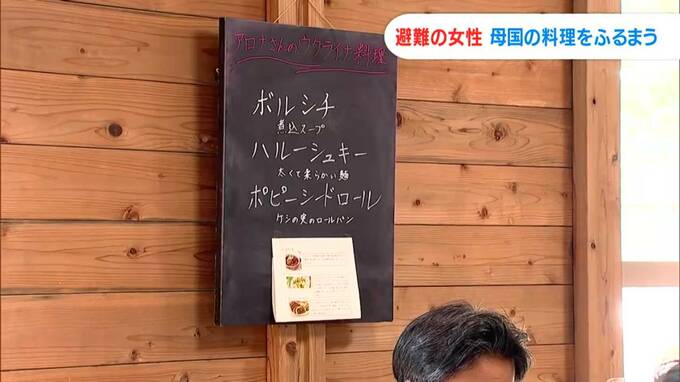 避難の女性 母国の料理をふるまう
アロナさんのウクライナ料理
ボルシチ
煮込スープ
ハルーシュキー
太くて柔らかい麺
ポピーシードロール
ケシの実のロールパン